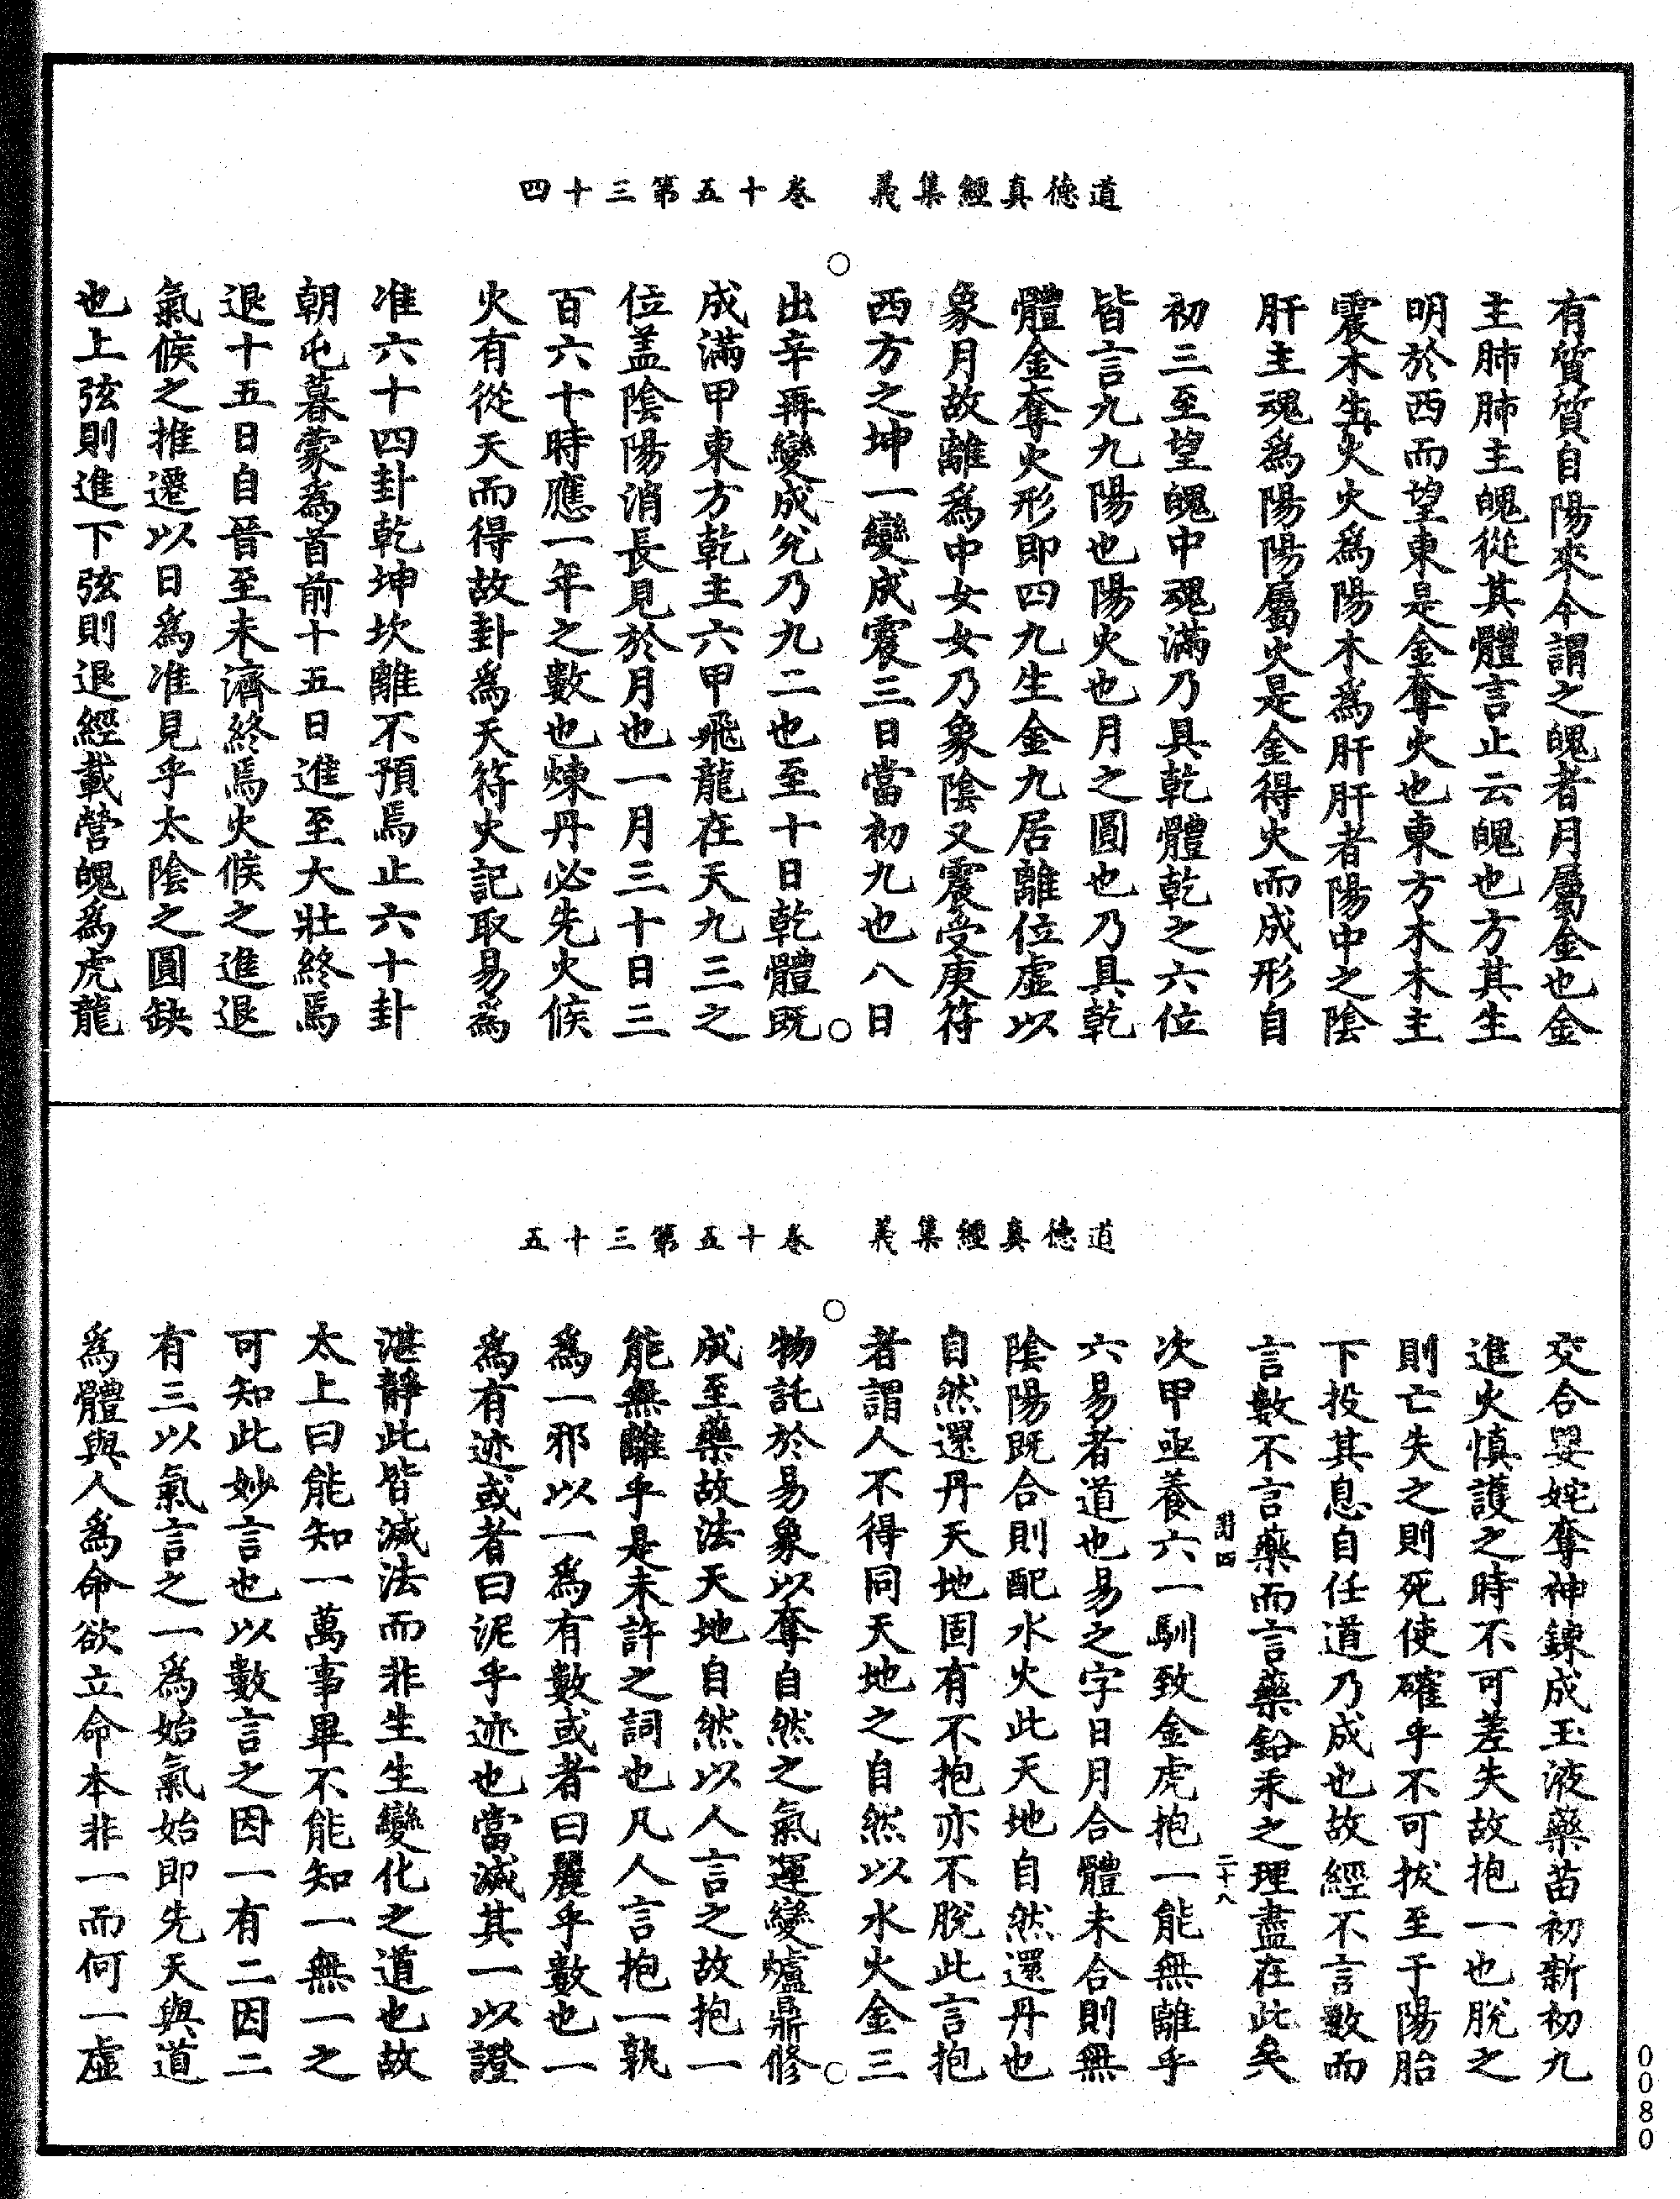 道德真經集義　卷十五第三十四
有質質自陽來今謂之魄者月屬金也金
主肺肺主魄從其體言止云魄也方其生
明於西而望東是金奪火也東方木木主
震木生火火為陽木為肝肝者陽中之陰
肝主魂為陽陽屬火是金得火而成形自
初三至望魄中魂滿乃具乾體乾之六位
皆言九九陽也陽火也月之圓也乃具乾
體金奪火形即四九生金九居離位虛以
象月故離為中女女乃象陰又震受庚符
西方之坤一變成震三日當初九也八日
出辛再變成兊乃九二也至十日乾體既
成滿甲東方乾主六甲飛龍在天九三之
位盖陰陽消長見於月也一月三十日三
百六十時應一年之數也煉丹必先火候
火有從天而得故卦為天符火記取易為
准六十四卦乾坤坎離不預焉止六十卦
朝屯暮蒙為首前十五日進至大壯終焉
退十五日自晉至未濟終焉火候之進退
氣候之推遷以日為准見乎太陰之圓缺
也上弦則進下弦則退經載營魄為虎龍
道德真經集義　卷十五第三十五
交合嬰姹奪神鍊成玉液藥苗初新初九
進火慎護之時不可差失故抱一也脫之
則亡失之則死使確乎不可拔至于陽胎
下投其息自任道乃成也故經不言數而
言數不言藥而言藥鉛汞之理盡在此矣
對四　二十八
次甲亟養六一馴致金虎抱一能無離乎
六易者道也易之字日月合體未合則無
陰陽既合則配水火此天地自然還丹也
自然還丹天地固有不抱亦不脫此言抱
者謂人不得同天地之自然以水火金三
物託於易象以奪自然之氣運變爐鼎修
成至藥故法天地自然以人言之故抱一
能無離乎是未許之詞也凡人言抱一孰
為一邪以一為有數或者曰麗乎數也一
為有迹或者曰泥乎迹也當滅其一以證
湛靜此皆滅法而非生生變化之道也故
太上曰能知一萬事畢不能知一無一之
可知此妙言也以數言之因一有二因二
有三以氣言之一為始氣始即先天與道
為體與人為命欲立命本非一而何一虛
0080